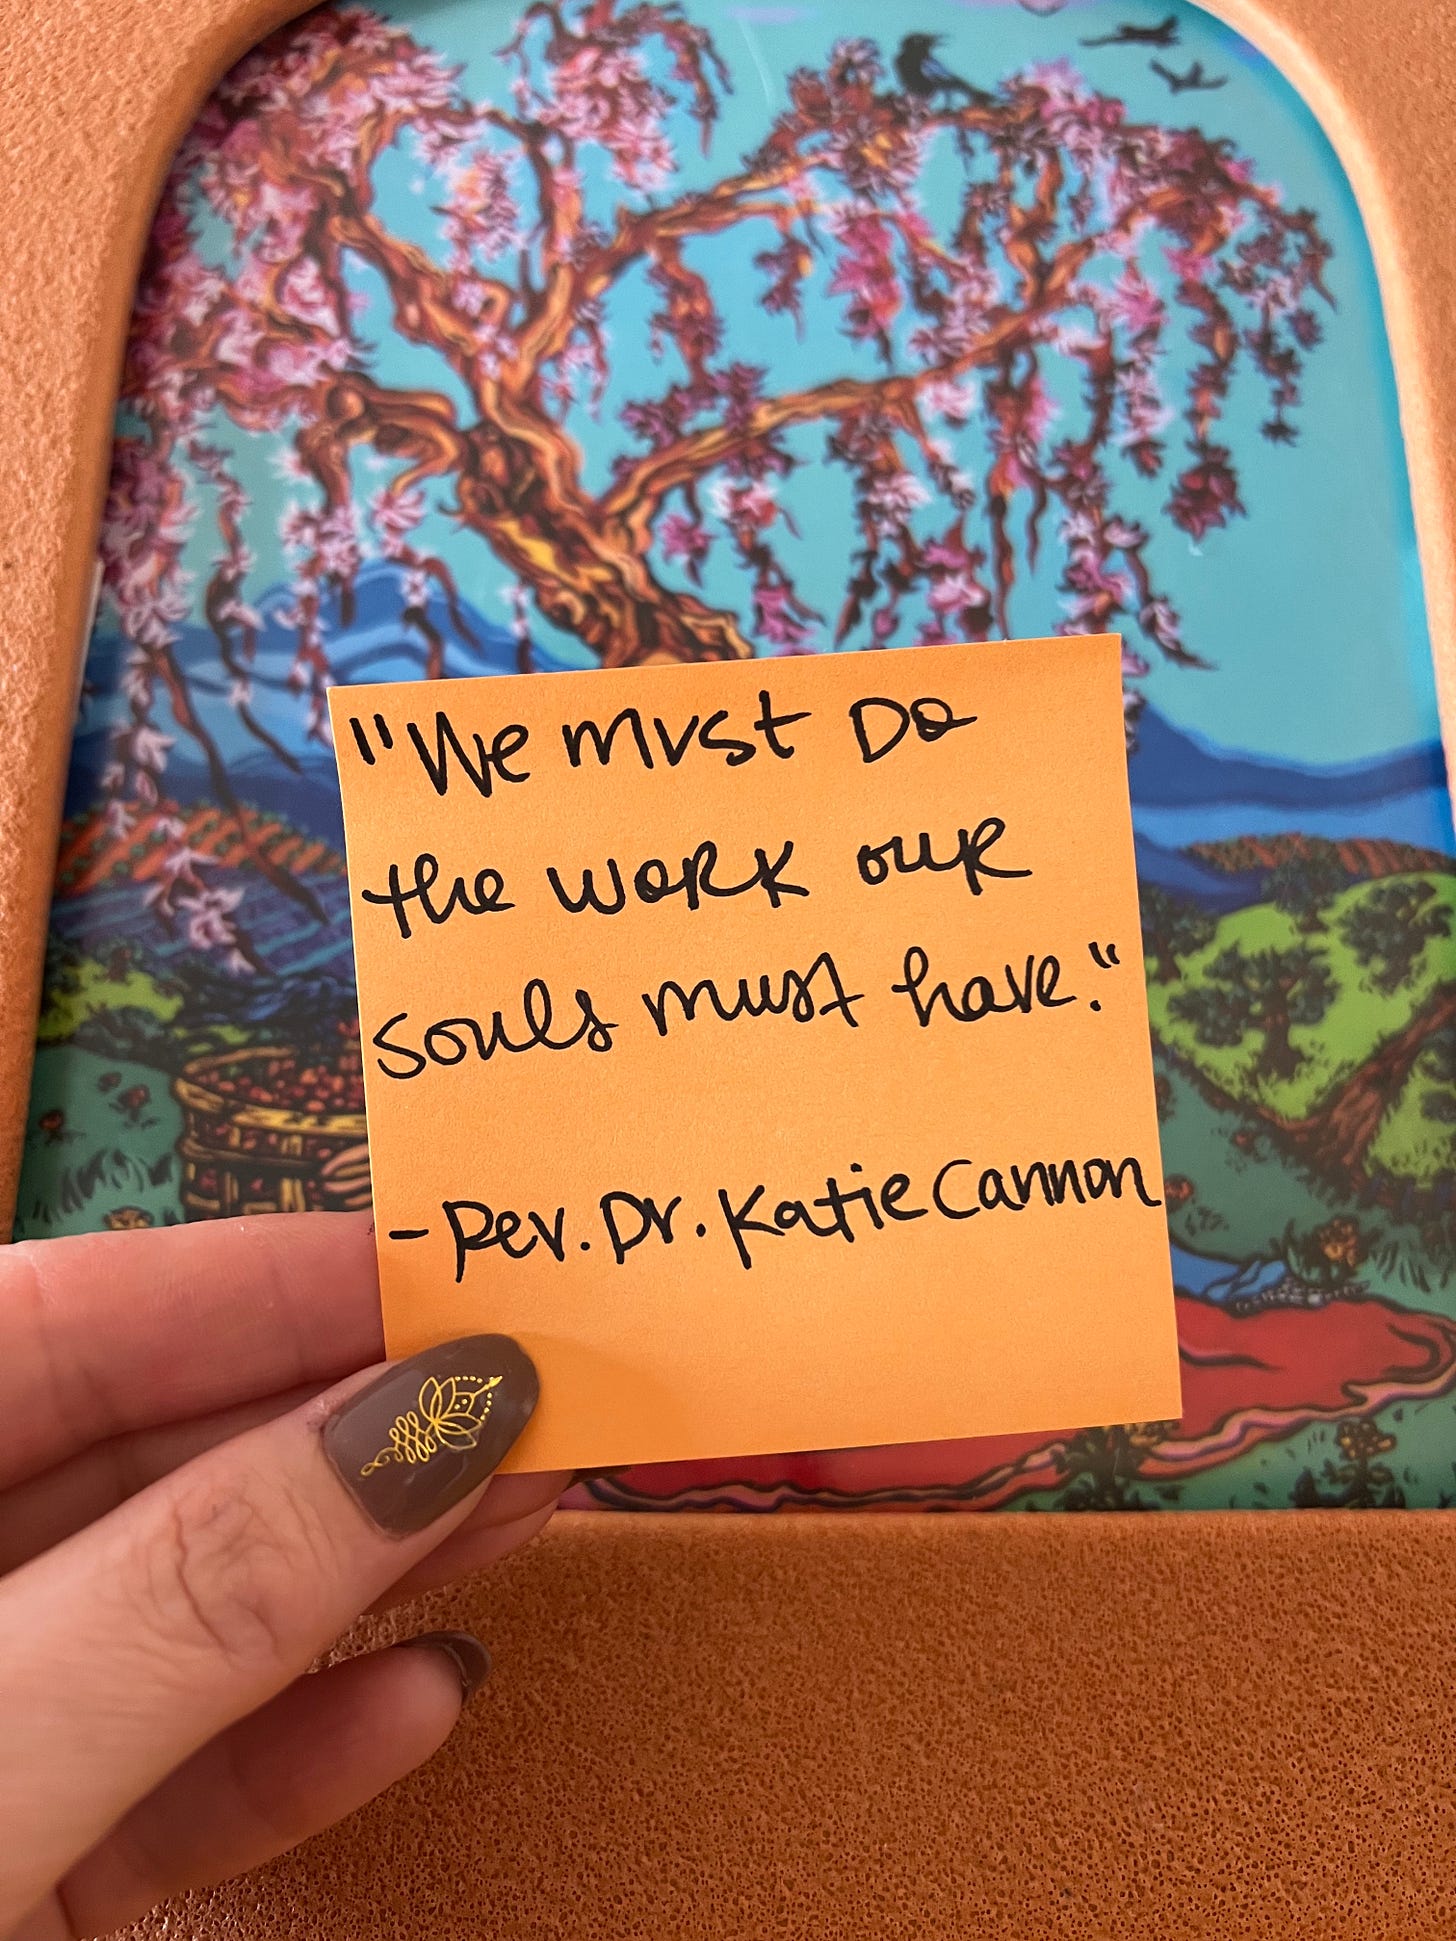 "We must Do
the work our
souls must have."
- Rev. Dr. Katie Cannon